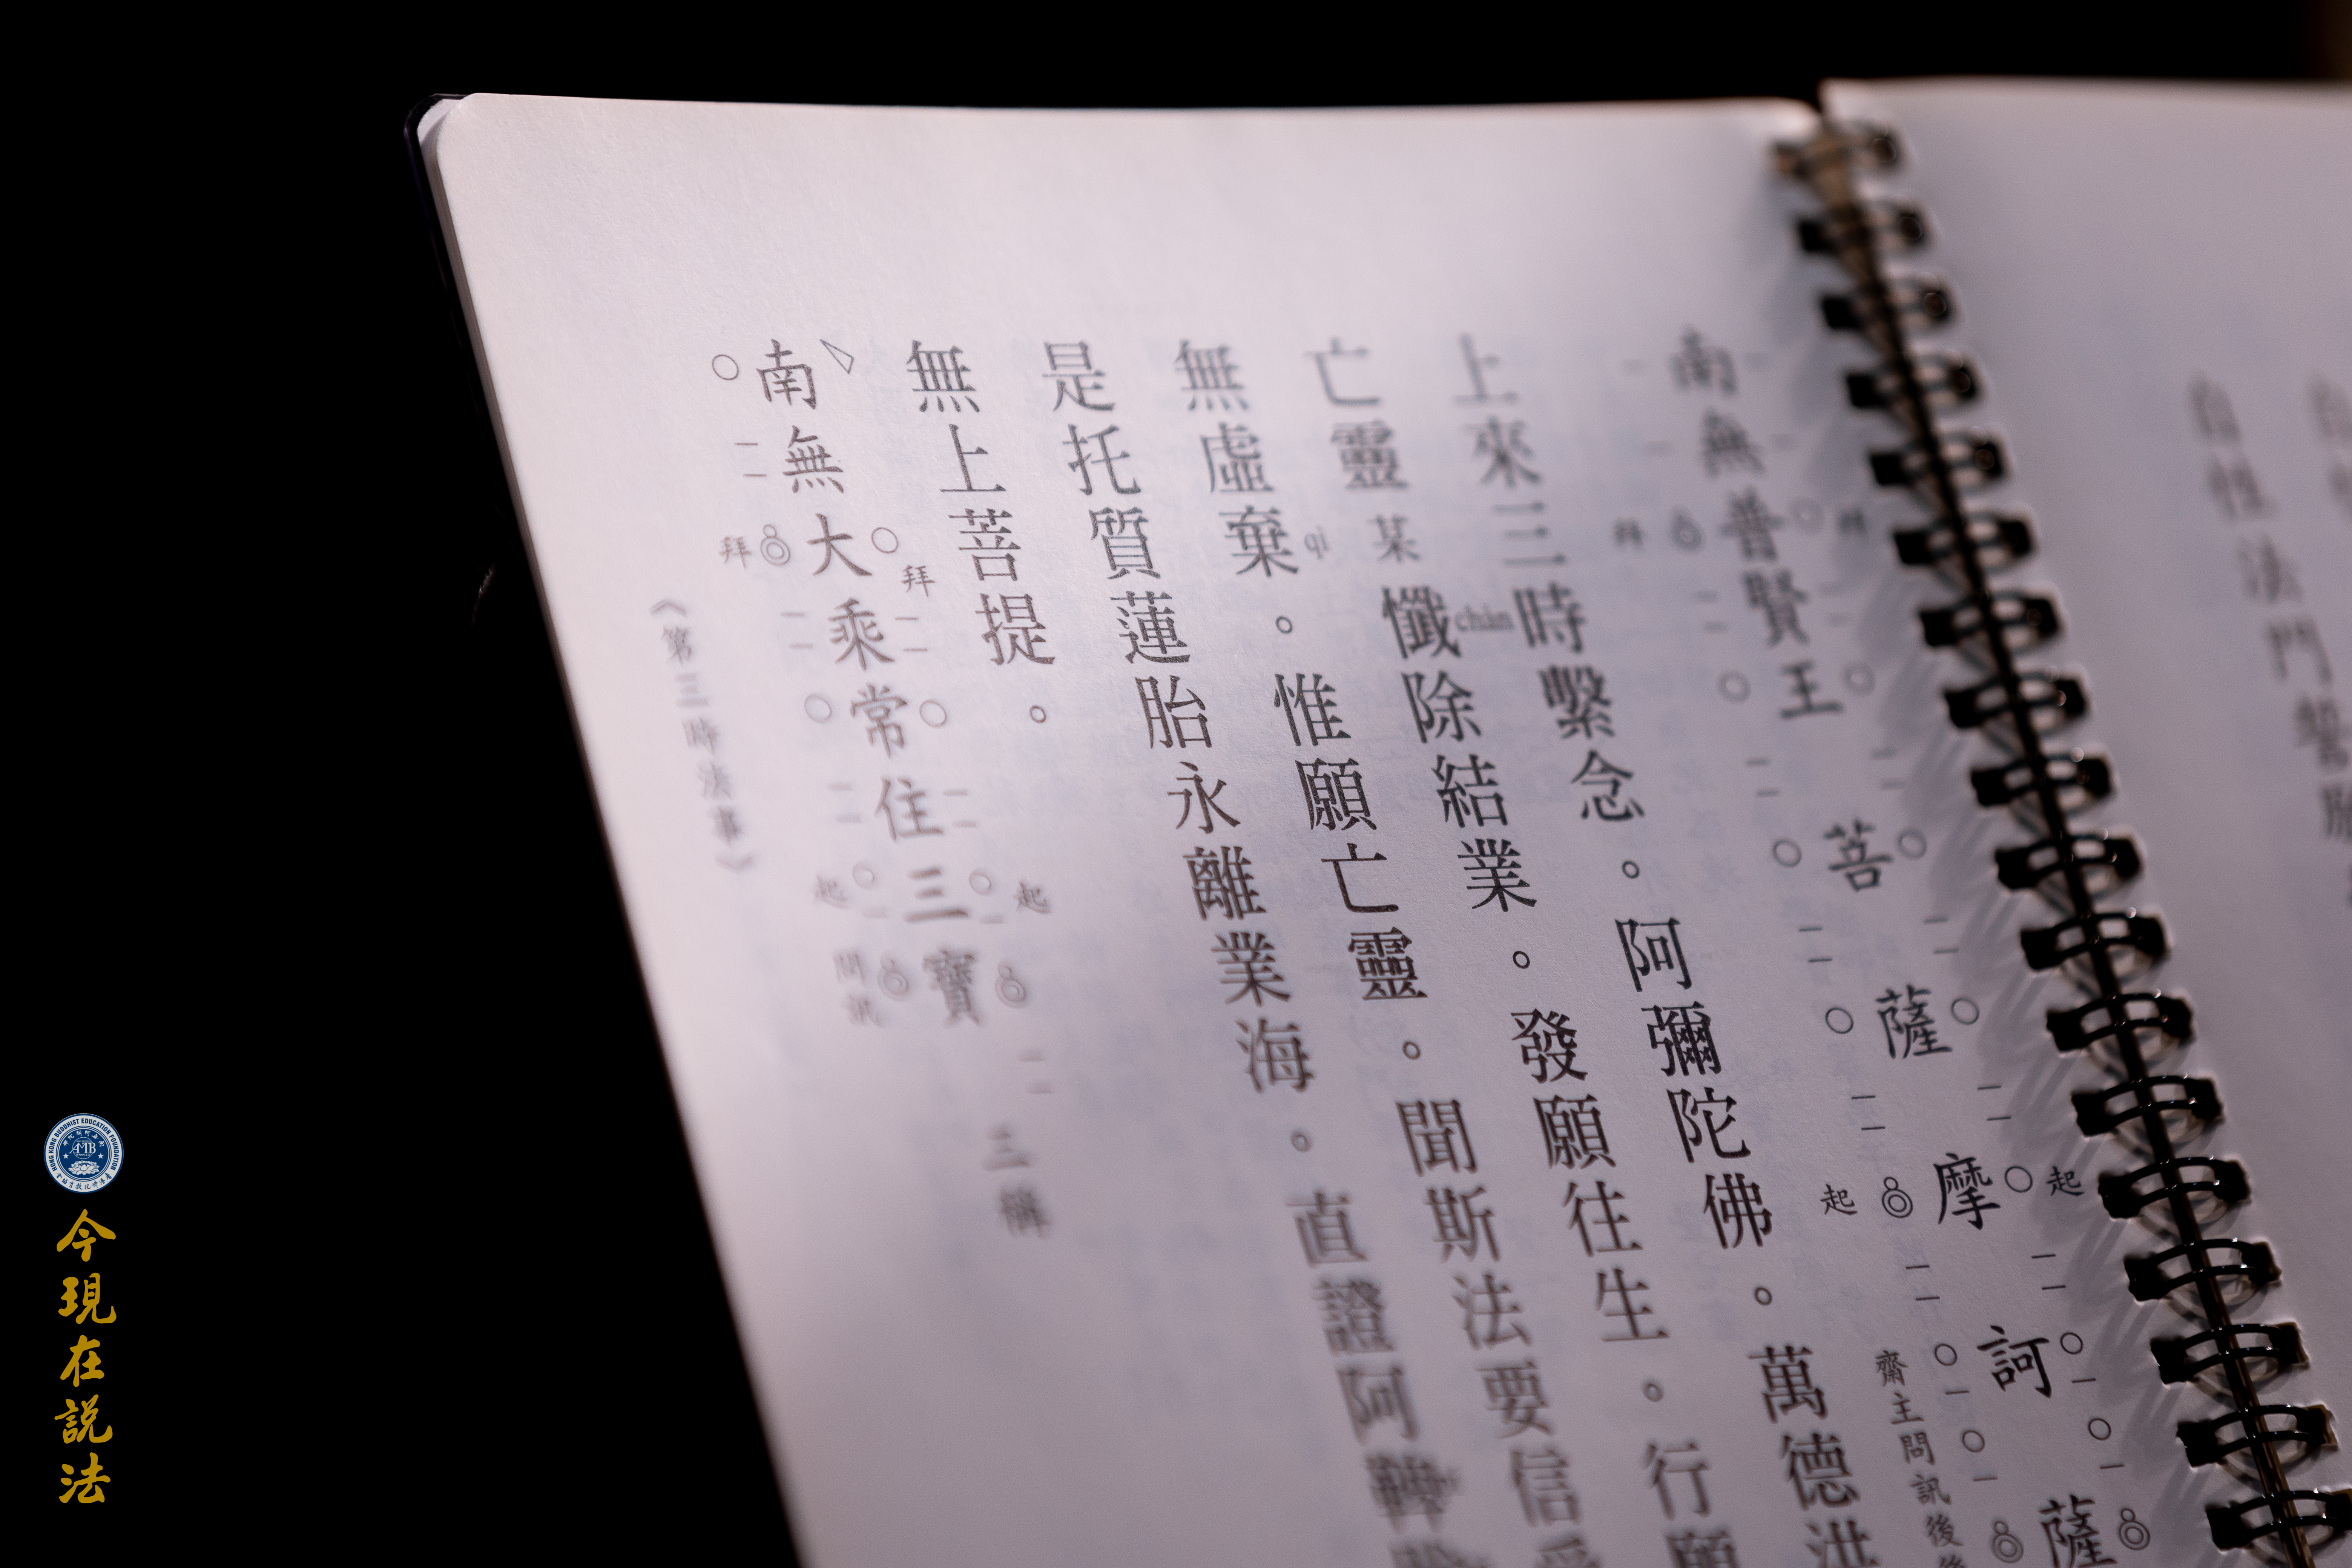 自性法門誓願
南無普賢王菩薩摩訶薩
拜 起
拜 起
齋主問訊後
上來三時繫念。阿彌陀佛。萬德洪
亡靈某懺chàn除結業。發願往生。行願
無虛棄qì。惟願亡靈。聞斯法要信受
是托質蓮胎永離業海。直證阿鞞
無上菩提。
南無大乘常住三寶 三稱
拜 起
拜 起 問訊
《第三時法事》
HONG KONG BUDDHIST EDUCATION FOUNDATION
AMB
今現在說法